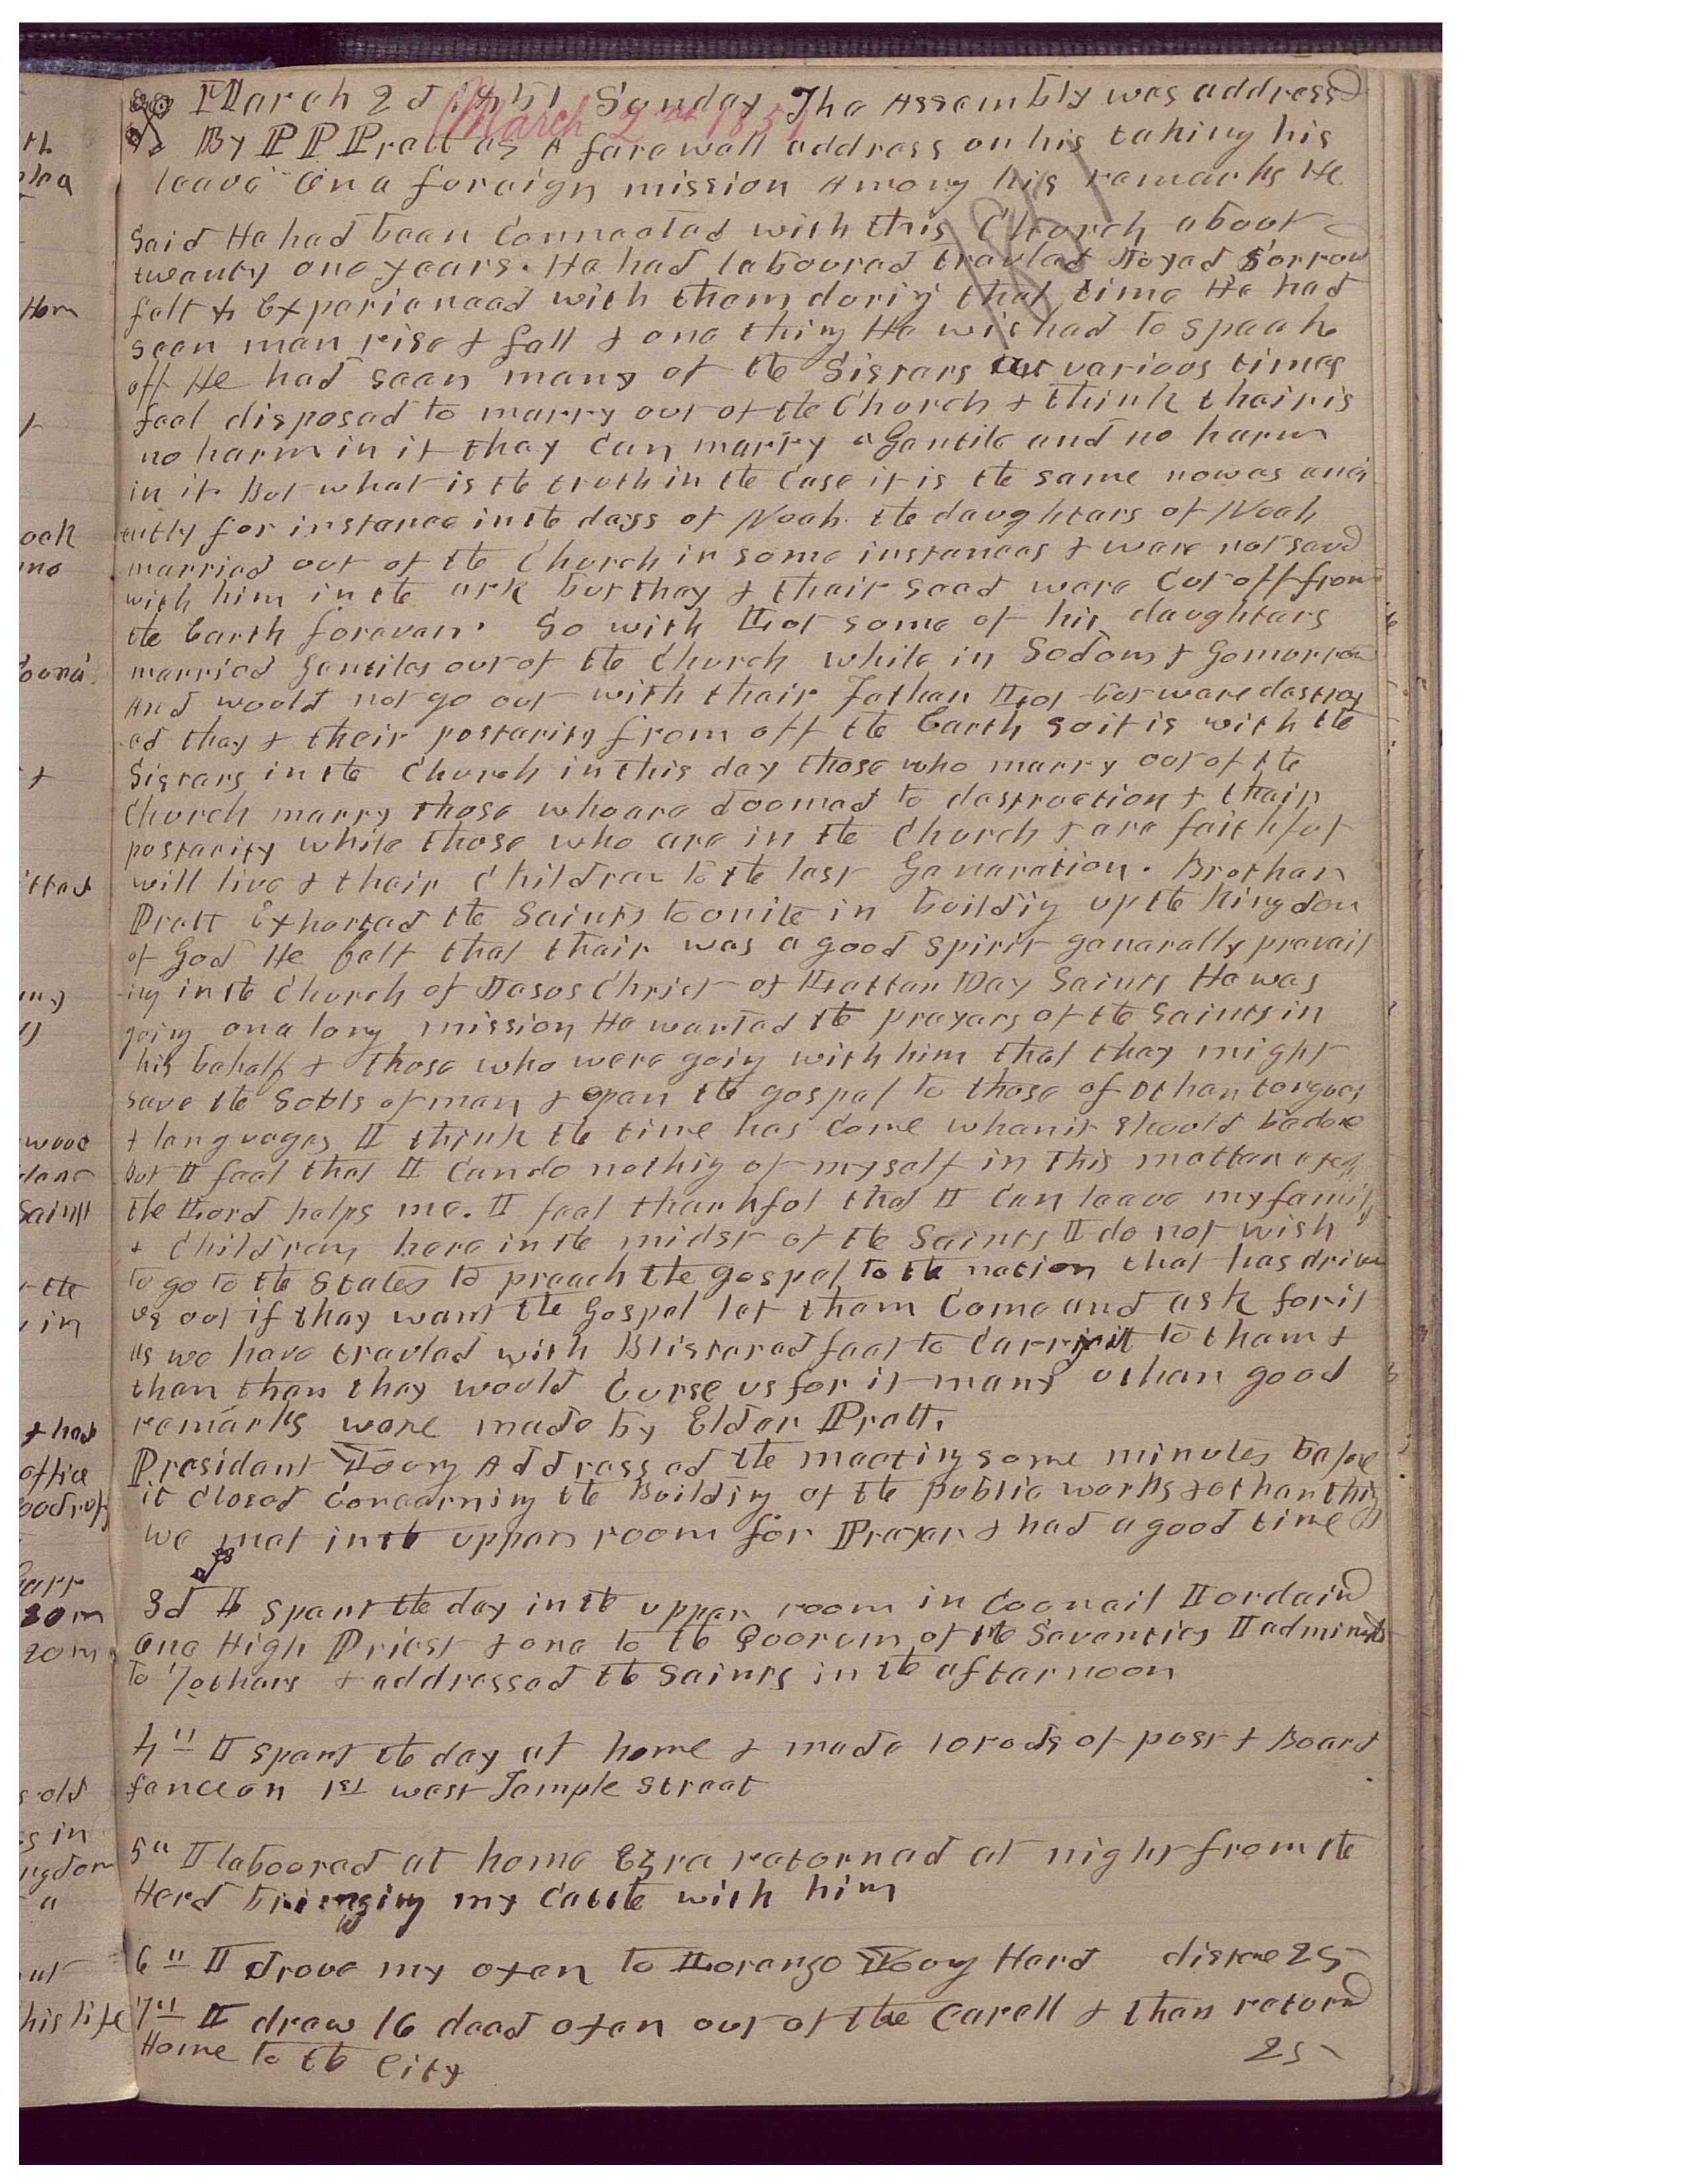 March 2d 1851 Sunday The Assembly was addressd
March 2nd 1851
By P P Pratt as A farewell address on his taking his
leave on a foreign mission Among his remarks He
1851
Said He had been Connected with this Church about
twenty one years. He had laboured traveled Joyed Sorrow
felt & Experienced with them duriy that time He had
seen men rise & fall & one thing He wished to speak
off He had seen many of the Sisters at various times
feel disposed to marry out of the Church & think their is
no harm in it they Can marry a Gentile and no harm
in it. But what is the truth in the Case it is the same now as anci
ently for instance in the days of Noah. the daughters of Noah
married out of the Church in some instances & were not savd
with him in the ark but they & their seed were Cut off from
the Earth forever. So with Lot some of his daughters
married Gentiles out of the Church while in Sodom & Gomorrow
And would not go out with their Father Lot but were destroy
ed they & their posterity from off the Earth so it is with the
Sisters in the Church in this day those who marry out of the
Church marry those who are doomed to destruction & their
posterity while those who are in the Church & are faithful
will live & their Children to the last Generation. Brother
Pratt Exhorted the Saints to unite in buildiy up the kingdom
of God He felt that their was a good spirit generally prevail
-ing in the Church of Jesus Christ of Latter Day Saints He was
going on a long mission He wanted the prayers of the Saints in
his behalf & those who were goiy with him that they might
save the Souls of men & open the gospel to those of other tongues
& languages I think the time has Come when it should be done
but I feel that I Can do nothiy of myself in this matter except
the Lord helps me. I feel thankful that I Can leave my family
& Children here in the midst of the Saints I do not wish
to go to the States to preach the gospel to the nation that has driven
us out if they want the Gospel let them Come and ask for it
as we have traveled with Blistered feet to Carry it to them &
then they would Curse us for it many other good
remarks were made by Elder Pratt.
President Young Addressed the meeting some minutes before
it closed Concerning the Building of the public works & other things
we met in the upper room for Prayer & had a good time
3d I spent the day in the upper room in Council I ordaind
one High Priest & one to the Quorum of the Seventies I administ
to 7 others & addressed the Saints in the afternoon
4th I spent the day at home & made 10 rods of post & Board
fence on 1st west Temple Street
5th I laboured at home Ezra returned at night from the
Herd bringing my Cattle with him
6th I drove my oxen to Lorenzo Young Herd distance 25
7th I drew 16 dead oxen out of the Carell & then returnd
Home to the City 25